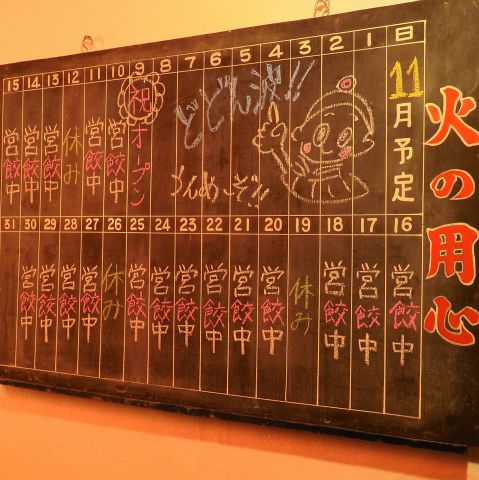 火の用心
日 1 2 3 4 5 6 7 8 9 10 11 12 13 14 15
11月予定
どどん波!!
うんめ〜ぞ!!
祝オープン
営餃中
営餃中
休み
営餃中
営餃中
営餃中
16 17 18 19 20 21 22 23 24 25 26 27 28 29 30 31
営餃中
営餃中
営餃中
休み
営餃中
営餃中
営餃中
営餃中
営餃中
営餃中
休み
営餃中
営餃中
営餃中
営餃中